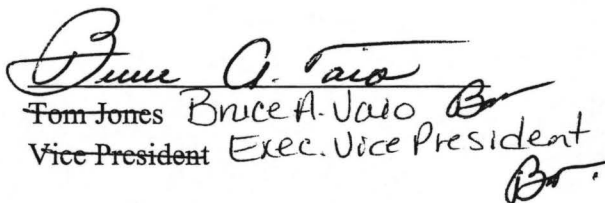 Bruce A. Vaio
Tom Jones Bruce A. Vaio BV
Vice President Exec. Vice President
BV